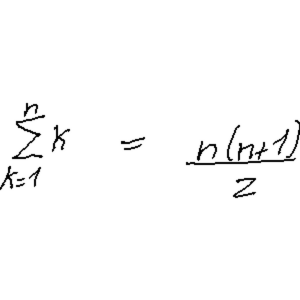 \sum_{k=1}^{n} k = \frac{n(n+1)}{2}